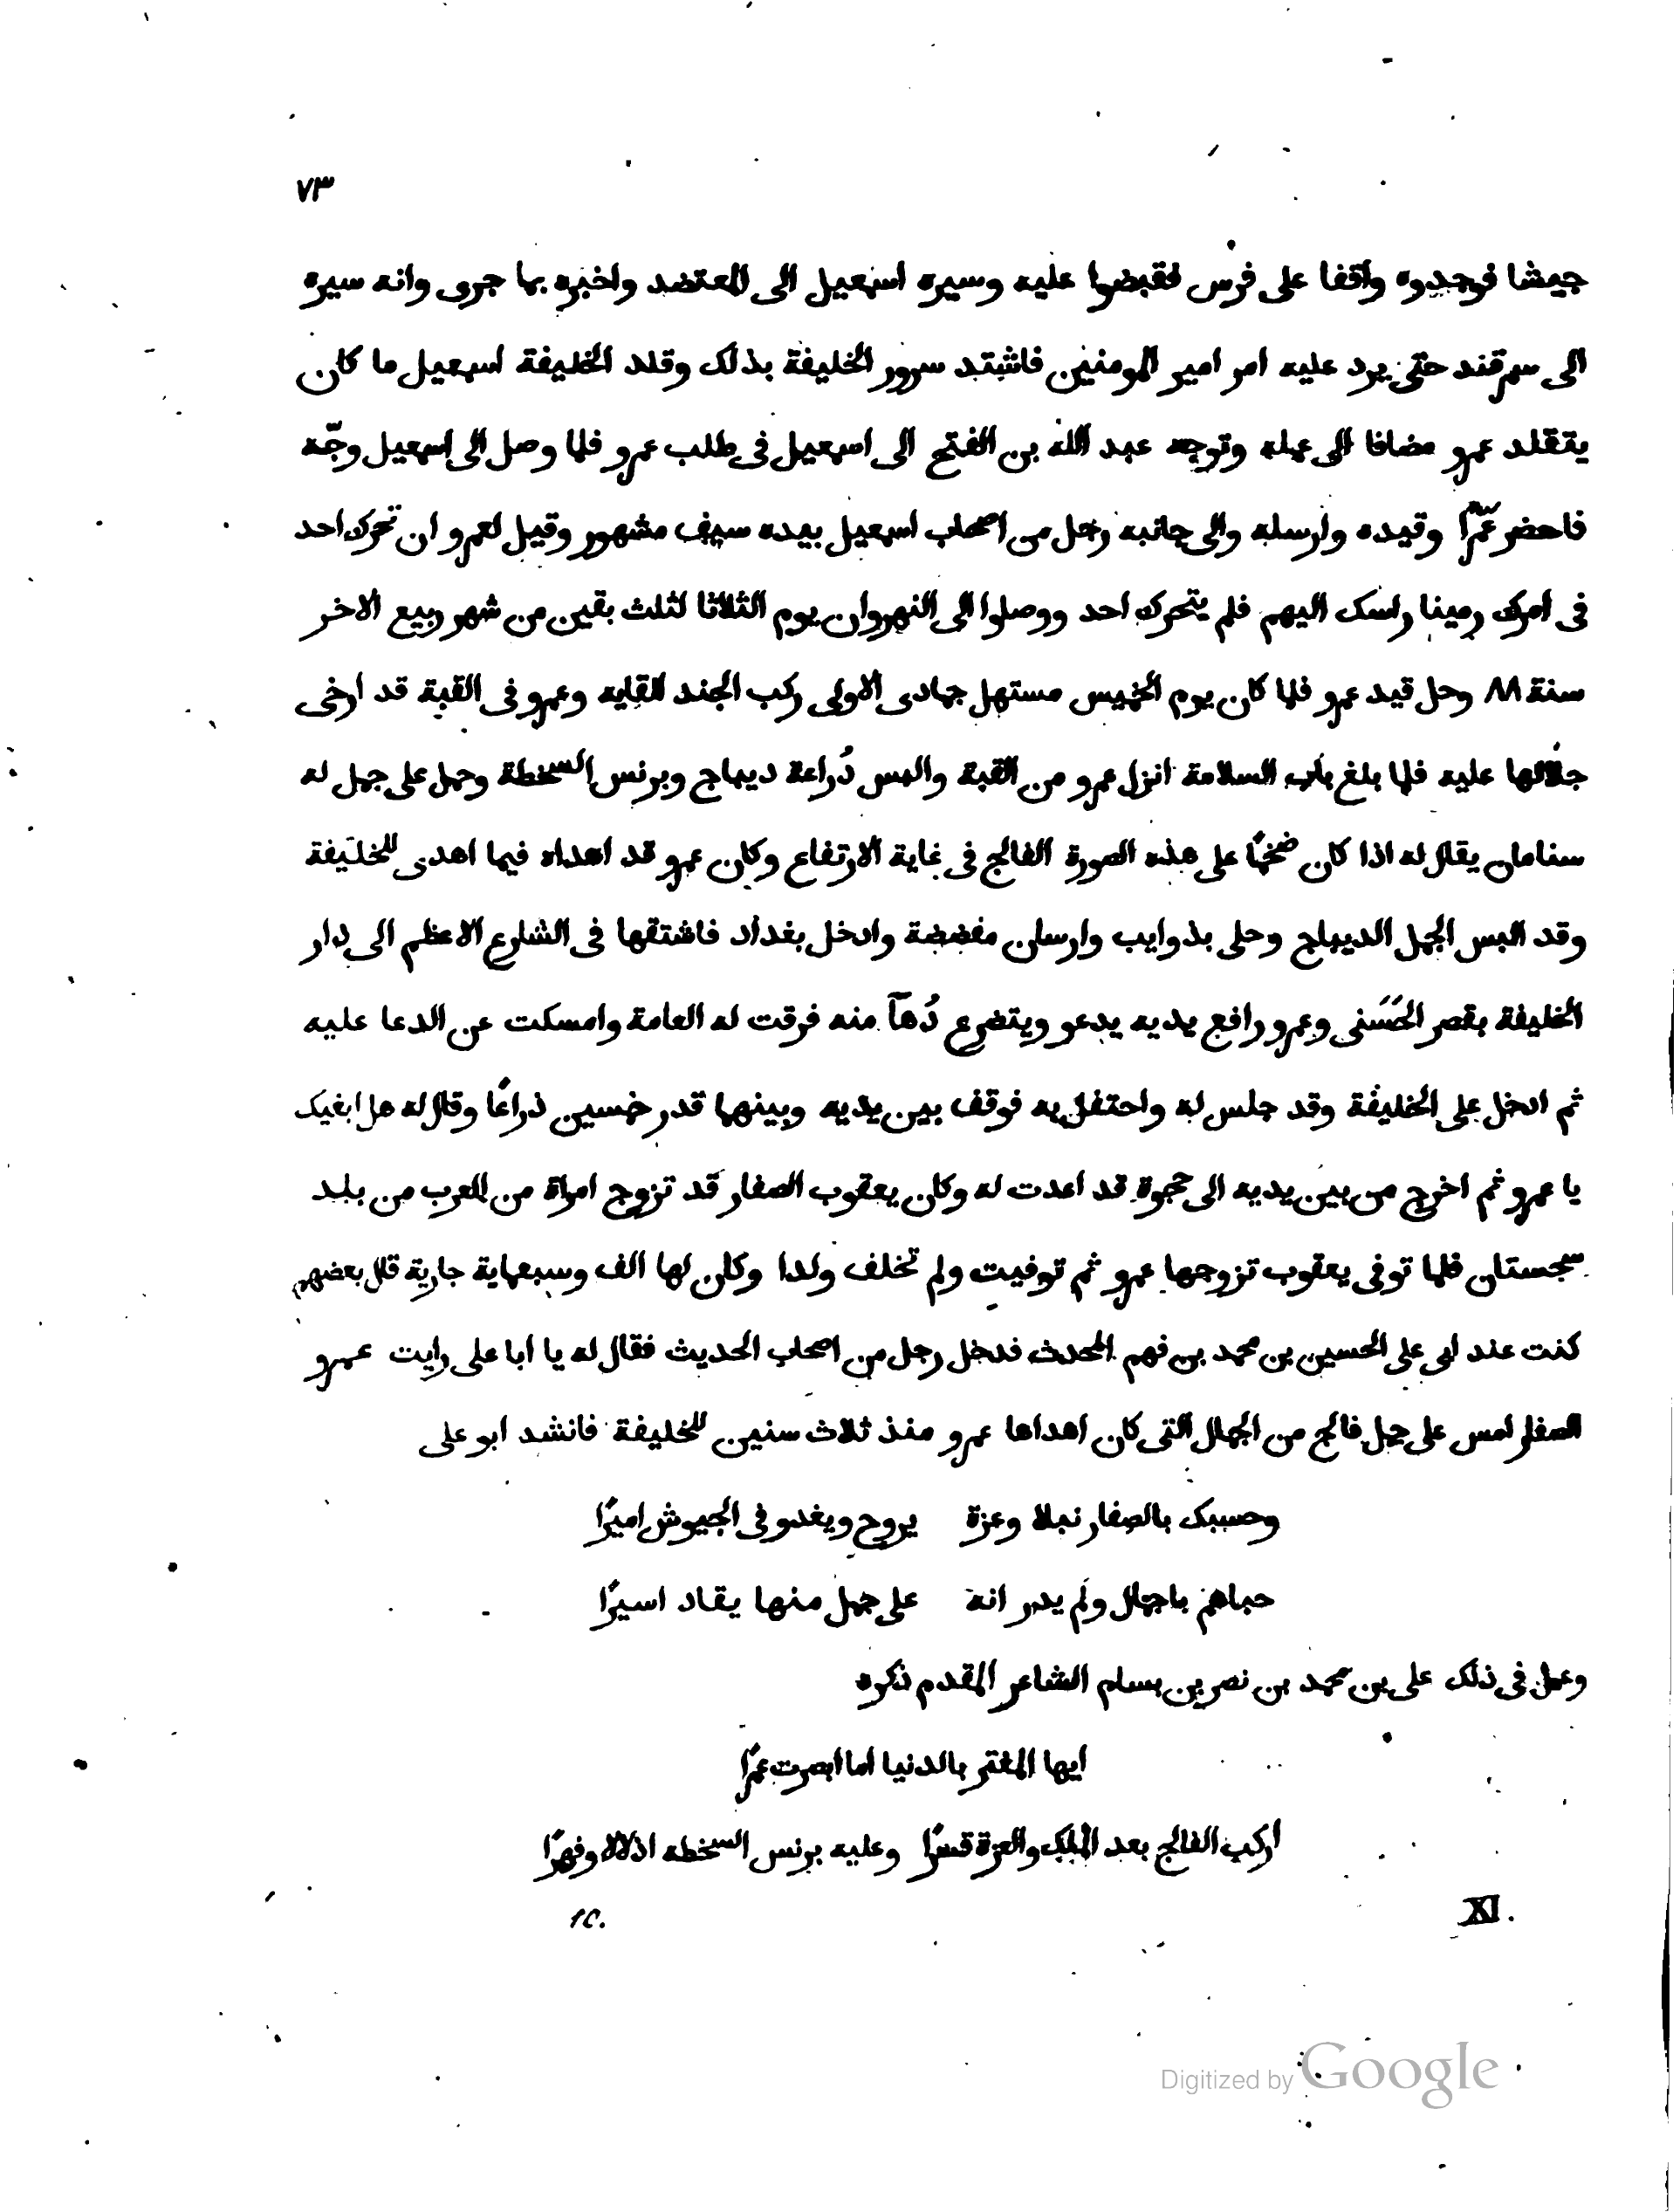 ٧٣
جيشا فوجدوه واقفا على فرس فقبضوا عليه وسيره اسمعيل الى المعتضد واخبره بما جرى وانه سيره
الى سمرقند حتى يرد عليه امر امير المومنين فاشتد سرور الخليفة بذلك وقلد الخليفة اسمعيل ما كان
يتقلد عمرو مضافا الى عمله وتوجه عبد الله بن الفتح الى اسمعيل فى طلب عمرو فلما وصل الى اسمعيل وجّه
فاحضر عمّرًا وقيده وارسله والى جانبه رجل من اصحاب اسمعيل بيده سيف مشهور وقيل لعمرو ان تحرك احد
فى امرك رمينا راسك اليهم فلم يتحرك احد ووصلوا الى النهروان يوم الثلاثا لثلث بقين من شهر ربيع الاخر
سنة ٨٨ وحل قيد عمرو فلما كان يوم الخميس مستهل جمادى الاولى ركب الجند للقايه وعمرو فى القبة قد ارخى
جلالها عليه فلما بلغ باب السلامة انزل عمرو من القبة والبس دُراعة ديباج وبرنس السخطة وحمل على جمل له
سنامان يقال له اذا كان ضخمًا على هذه الصورة الفالج فى غاية الارتفاع وكان عمرو قد اهداه فيما اهدى للخليفة
وقد البس الجمل الديباج وحلى بذوايب وارسان مفضضة وادخل بغداد فاشتقها فى الشارع الاعظم الى دار
الخليفة بقصر الحَسَنى وعمرو رافع يديه يدعو ويتضرع دُهآ منه فرقت له العامة وامسكت عن الدعا عليه
ثم ادخل على الخليفة وقد جلس له واحتفل به فوقف بين يديه وبينهما قدر خمسين ذراعًا وقال له هل ابغيك
يا عمرو ثم اخرج من بين يديه الى حجرة قد اعدت له وكان يعقوب الصفار قد تزوج امراة من العرب من بلد
سجستان فلما توفى يعقوب تزوجها عمرو ثم توفيت ولم تخلف ولدا وكان لها الف وسبعماية جارية قال بعضهم
كنت عند ابى على الحسين بن محمد بن فهم المحدث فدخل رجل من اصحاب الحديث فقال له يا ابا على رايت عمرو
الصفار امس على جمل فالج من الجمال التى كان اهداها عمرو منذ ثلاث سنين للخليفة فانشد ابو على
وحسبك بالصفار نبلا وعزة يروح ويغدو فى الجيوش اميرًا
حباهم باجمال ولم يدر انه على جمل منها يقاد اسيرًا
وعمل فى ذلك على بن محمد بن نصر بن بسام الشاعر المقدم ذكره
ايها المغتر بالدنيا اما ابصرت عمرًا
اركب الفالج بعد الملك والعزة قسرًا وعليه برنس السخطه اذلالا وقهرًا
XI.
Digitized by Google